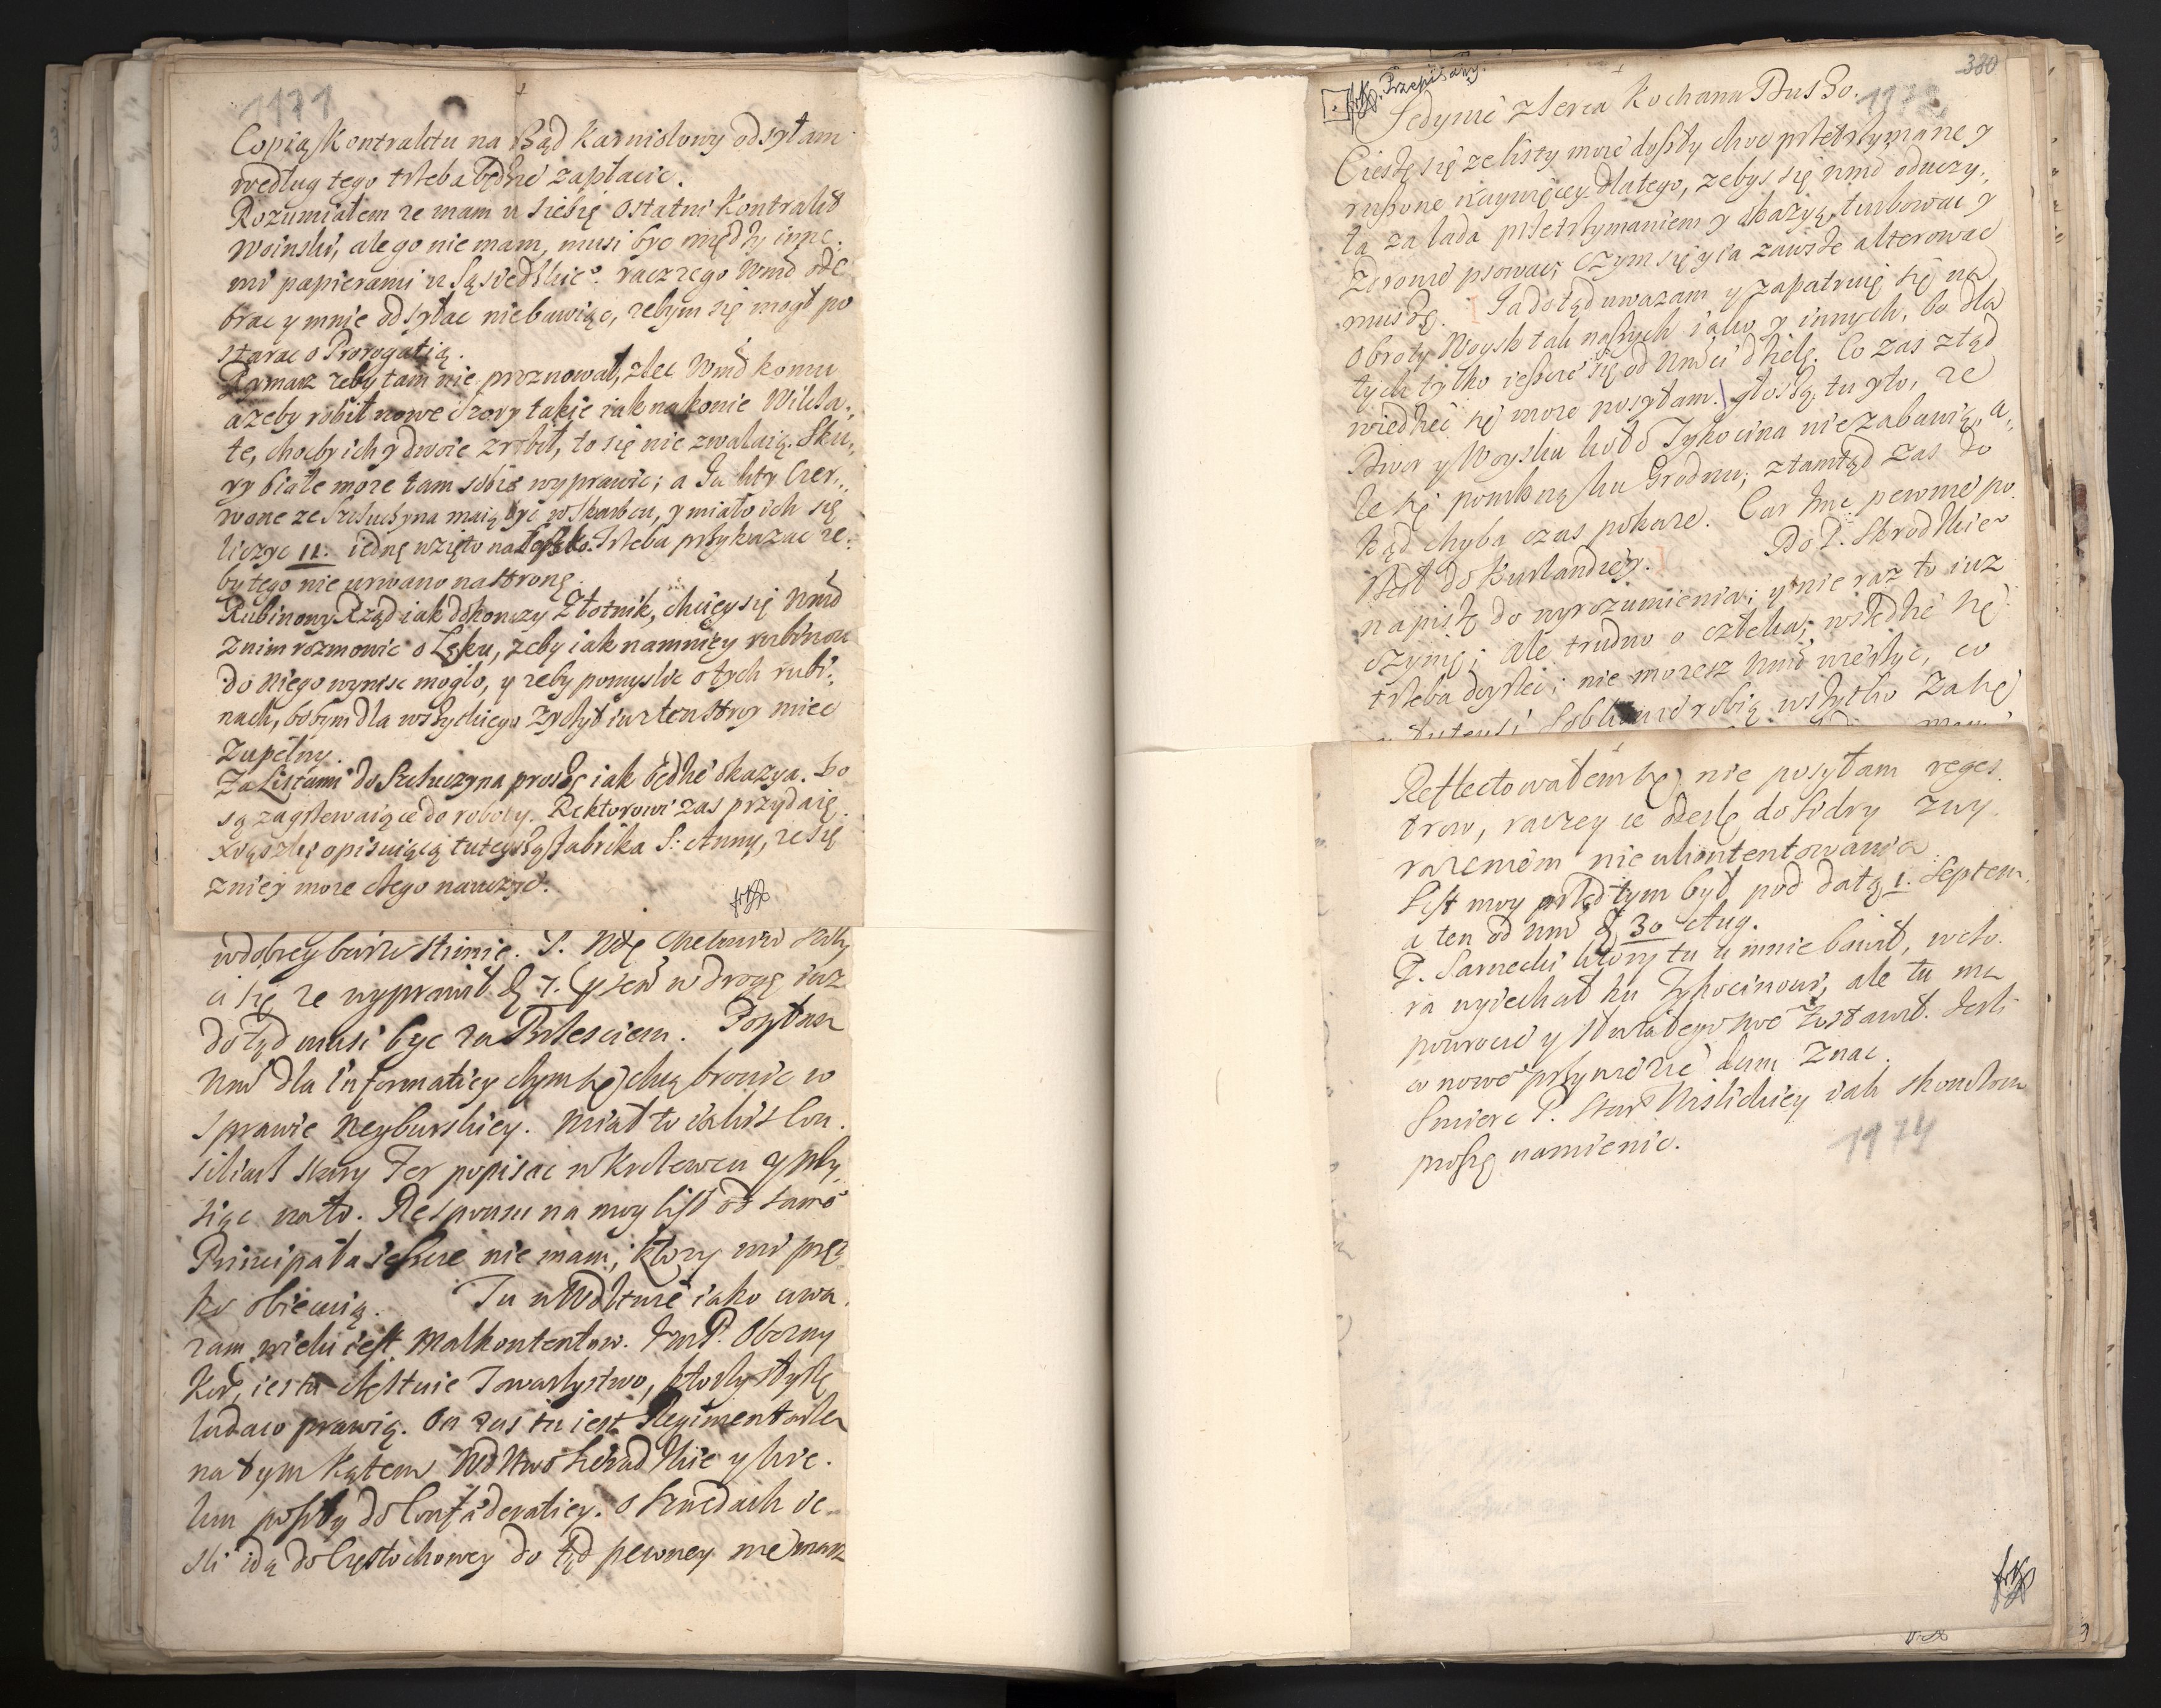 1171
Copią Kontraktu na Rząd Karniolowy odsyłam
według tego trzeba będzie zapłacic.
Rozumiałem ze mam u siebię Ostatni Kontrakt
Woinski, ale go nie mam, musi byc między inne.
mi papierami u Sąsiedzkie°. racz zego Wmć ode
brac y mnie odsyłac niebawiąc, zebym się mogł po
starac o Prorogatią.
Rymarz zeby tam nie proznował, zlec Wmć komu
azeby robił nowe Szory takie iak na konie Wilcza.,
te, chocby ich y dwoie zrobił, to się nie zwalaią. Sku.,
ry białe moze tam sobie wyprawic; a Juchty Czer.,
wone ze Szczuczyna maią byc w Skarbcu, y miało ich się
liczyc 11. iednę wzięto na Trzeba przykazac ze.
by tego nie urwano na stronę.
Rubinowy Rząd iak dokonczy Złotnik, chciey się Wmć
z nim rozmowic o Lęku, zeby iak namniey rubinow
do niego wynisc mogło, y zeby pomyslic o tych rubi.,
nach, bo bym dla wszytkiego zyczył iuz ten stroy miec
zupełny.
Za Listami do Szczuczyna proszę iak będzie okazya. bo
są zagrzewaiące do roboty. Rektorowi zas przydaię
Xiąszkę opisuiącą tuteyszą fabrika S: Anny, ze się
z niey moze czego nauczyc.
w dobrey barzo stimie. P.
ci się ze wyprawił w drogę iuz
dotąd musi byc za Brzesciem. Posyłam
Wmć dla informatiey czym się chcą bronic w
sprawie Neyburskiey. Miał to iakis Con.
siliarz stary Ter popisac w Krolewcu y przy.
siąc na to. Responsu na moy list od same°
Principała ieszcze nie mam, ktory mi pręd
ko obiecuią. Tu w Wdztwie iako uwa.
zam wielu iest Malkontentow. JmP. Obozny
Kor, iest u Częstuie Towarzystwo, ktorzy
ladaco prawią. On zas tu iest Regimentarzem
na tym kątem Wdztwo Sieradzkie y kie.
lku poszły do Confoederatiey. o Szwedach ie.,
sli idą do Częstochowey do tąd pewney nie masz
330
Przepisany.
1173
Jedynie z serca Kochana Duszo.
Cieszę się ze listy moie doszły choc przetrzymane y
rusone naywięcey dlatego, zebys się Wmć oduczy.,
ła za lada przetrzymaniem y okazyą, turbowac y
Zdrowie psowac; czym się y ia zawsze alterowac
muszę. Ja dotąd uwazam y zapatruię się na
Obroty Woysk tak naszych iako y innych, bo dla
tych tylko ieszcze się od Wmści dzielę. Co zas ztąd
wiedziec się moze posyłam. Głoszą tu yto, ze
Dwor y Woyska koło Tykocina nie zabawią, a.,
le się pomkną ku Grodnu; ztamtąd zas do
kąd chyba czas pokaze. Car Jmc pewnie po
szedł do Kurlandiey. Do P. Skrodzkie°
napiszę do wyrozumienia; y nie raz to iuz
czynię; ale trudno o czleka; wszędzie się
trzeba dozylec; nie mozesz Wmć wierzyc, co
robią wszytko za się
Reflectowałem się, nie posyłam reges.
trow, raczey ie odeslę do Sidry z wy.
razeniem nieukontentowania.
List moy przedtym był pod datą 1. Septem.
a ten od Wmć 30 Aug.
P. Sarnecki ktory tu u mnie bawił, wczo.
ra wyiechał ku Tykocinowi, ale tu ma
powrocic y zostawił. Jesli
co nowe° przywiezie dam znac.
Smierc P. Star Wislickiey iak skonczona
proszę namienic.
1174